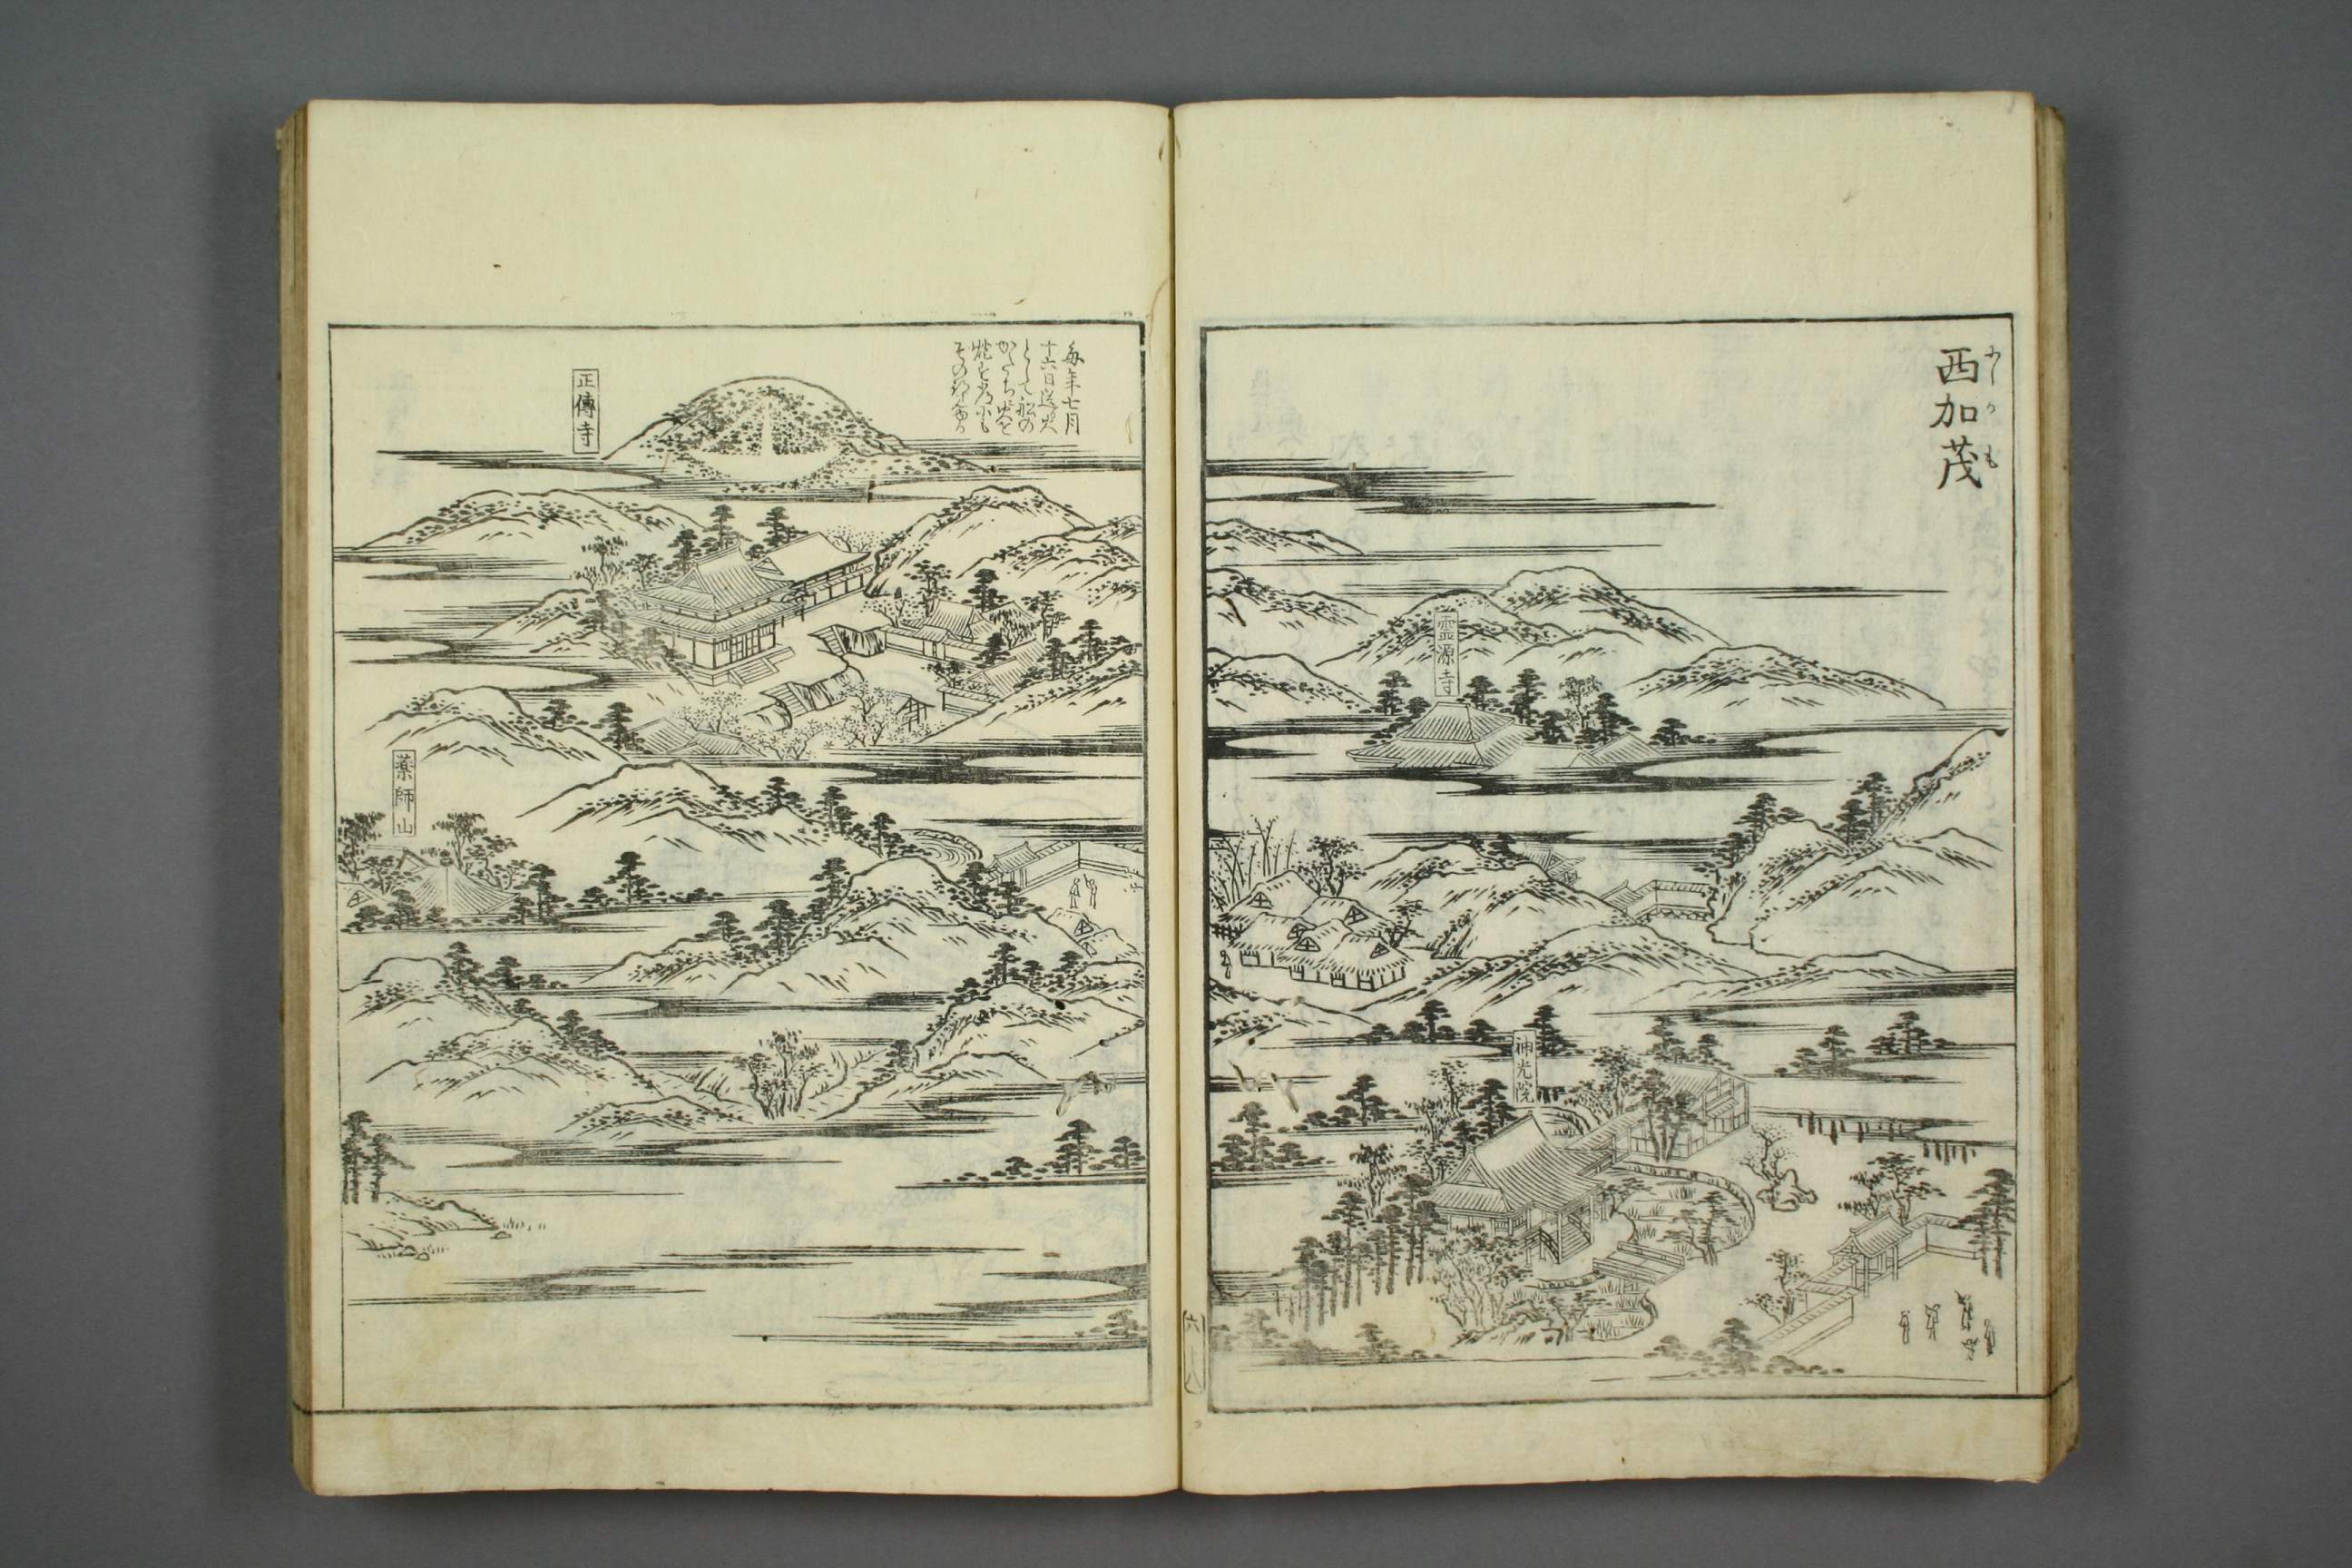 西加茂
にしかも
霊源寺
神光院
毎年七月
十六日送火
として船の
かたち火を
焼
正傳寺
薬師山
六